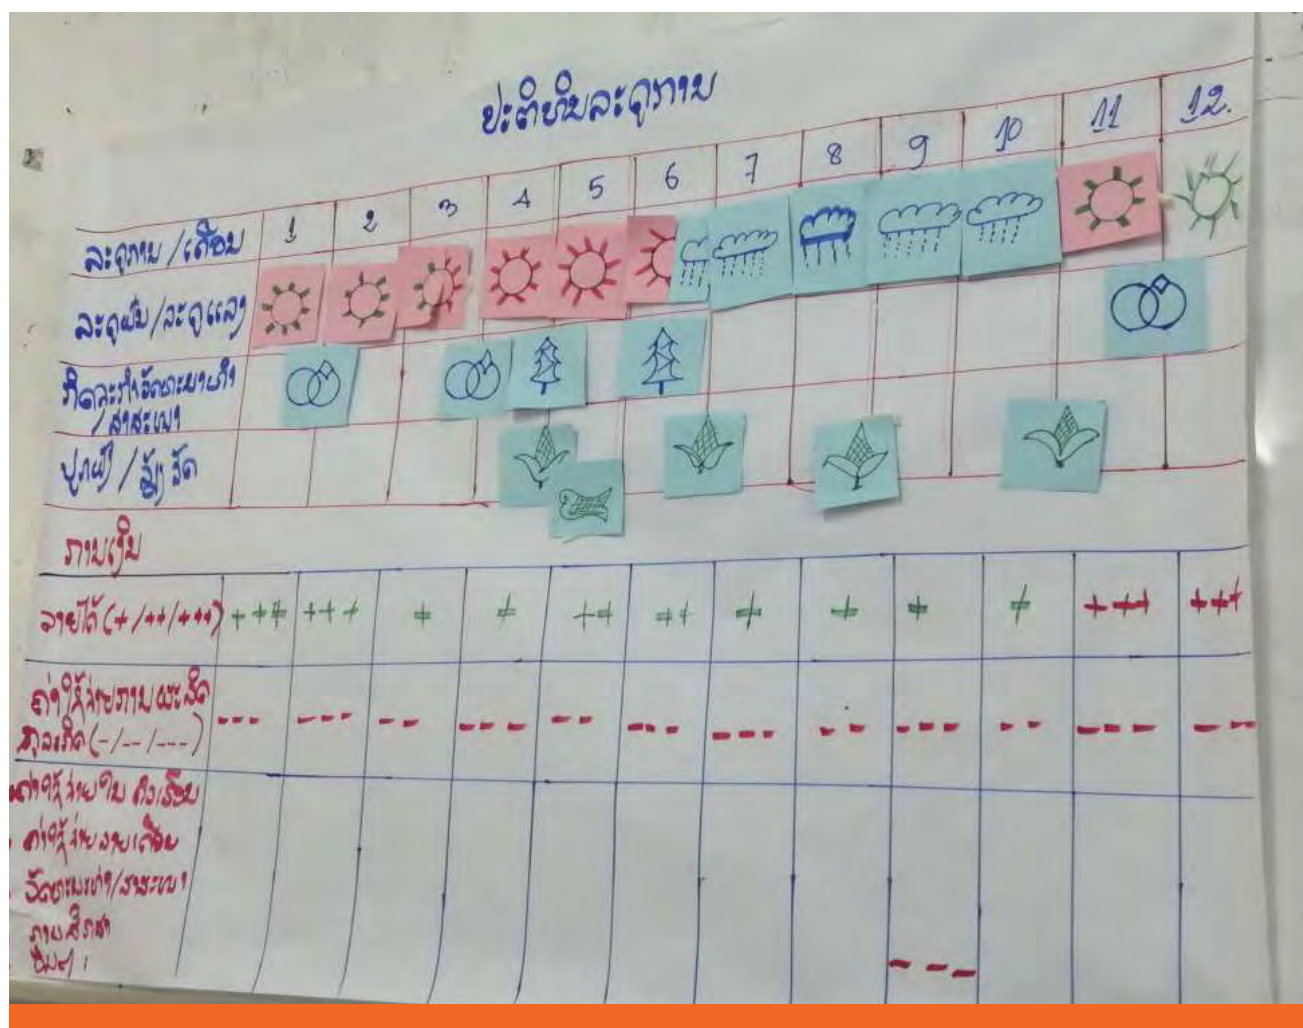 ປະຕິທິນລະດູການ
ລະດູການ /ເດືອນ 1 2 3 4 5 6 7 8 9 10 11 12.
ລະດູຝົນ/ລະດູແລ້ງ
ກິດຈະກຳວັດທະນາທຳ
/ສາສະໜາ
ປູກຝັງ / ລ້ຽງ ສັດ
ການເງິນ
ລາຍໄດ້ (+/++/+++) +++ +++ + + ++ ++ + + + + +++ +++
ຄ່າໃຊ້ຈ່າຍການຜະລິດ
ທຸລະກິດ (-/--/---) --- --- -- --- -- --- --- -- --- -- --- ---
ຄ່າໃຊ້ຈ່າຍໃນ ຄົວເຮືອນ
ຄ່າໃຊ້ຈ່າຍລາຍເດືອນ
ວັດທະນະທຳ/ສາສະໜາ
ການສຶກສາ
ອື່ນໆ : ---